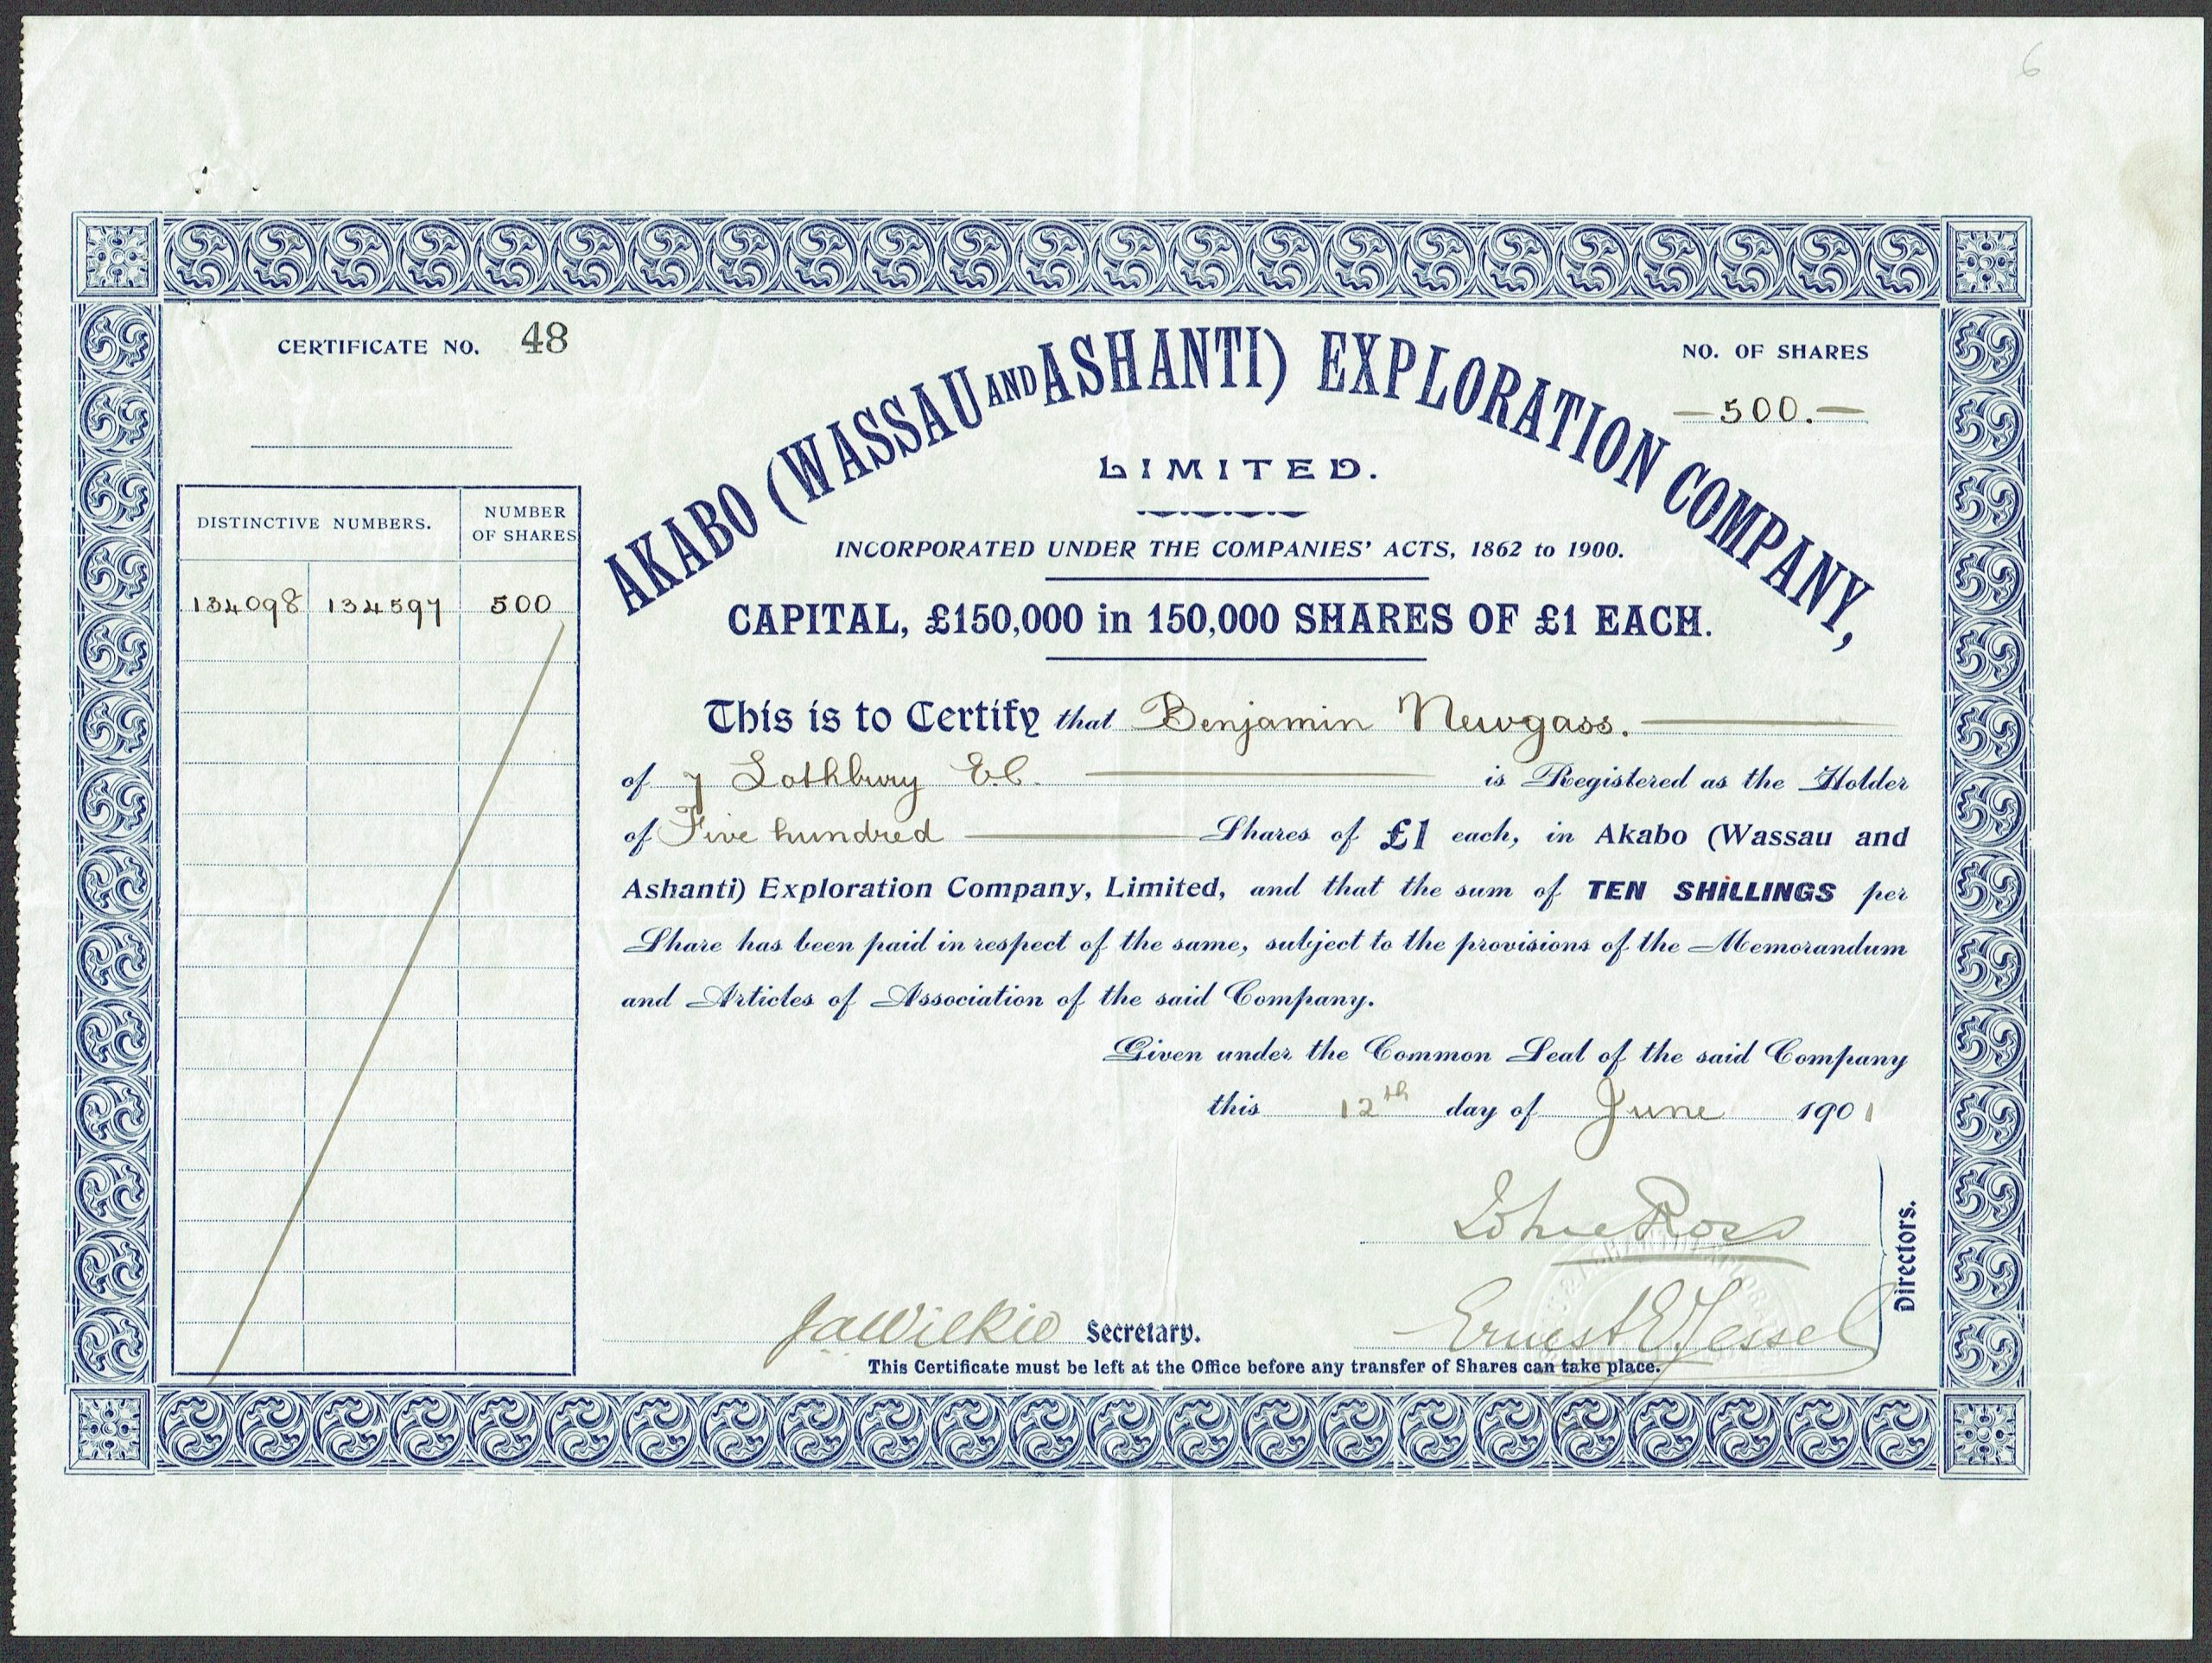 6
CERTIFICATE NO. 48
NO. OF SHARES
500.
AKABO (WASSAU AND ASHANTI) EXPLORATION COMPANY,
LIMITED.
INCORPORATED UNDER THE COMPANIES' ACTS, 1862 to 1900.
CAPITAL, £150,000 in 150,000 SHARES OF £1 EACH.
DISTINCTIVE NUMBERS. NUMBER OF SHARES
134098 134597 500
This is to Certify that Benjamin Newgass.
of 7 Lothbury E.C. is Registered as the Holder
of Five hundred Shares of £1 each, in Akabo (Wassau and
Ashanti) Exploration Company, Limited, and that the sum of TEN SHILLINGS per
Share has been paid in respect of the same, subject to the provisions of the Memorandum
and Articles of Association of the said Company.
Given under the Common Seal of the said Company
this 12th day of June 1901
John Ross
Directors.
JAWilkie Secretary.
Ernest E Jessel
This Certificate must be left at the Office before any transfer of Shares can take place.